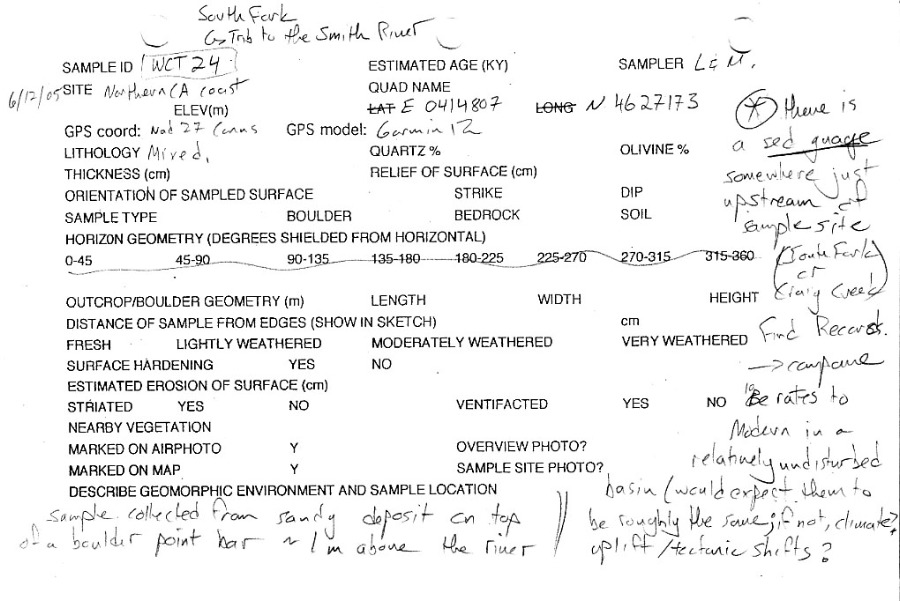 South Fork
↳ Trib to the Smith River
SAMPLE ID WCT 24 ESTIMATED AGE (KY) SAMPLER L & M.
6/12/05 SITE Northern CA coast QUAD NAME
ELEV(m) LAT E 0414807 LONG N 4627173
GPS coord: Nad 27 Conus GPS model: Garmin 12
LITHOLOGY Mixed. QUARTZ % OLIVINE %
THICKNESS (cm) RELIEF OF SURFACE (cm)
ORIENTATION OF SAMPLED SURFACE STRIKE DIP
SAMPLE TYPE BOULDER BEDROCK SOIL
HORIZON GEOMETRY (DEGREES SHIELDED FROM HORIZONTAL)
0-45 45-90 90-135 135-180 180-225 225-270 270-315 315-360
OUTCROP/BOULDER GEOMETRY (m) LENGTH WIDTH HEIGHT
DISTANCE OF SAMPLE FROM EDGES (SHOW IN SKETCH) cm
FRESH LIGHTLY WEATHERED MODERATELY WEATHERED VERY WEATHERED
SURFACE HARDENING YES NO
ESTIMATED EROSION OF SURFACE (cm)
STRIATED YES NO VENTIFACTED YES NO
NEARBY VEGETATION
MARKED ON AIRPHOTO Y OVERVIEW PHOTO?
MARKED ON MAP Y SAMPLE SITE PHOTO?
DESCRIBE GEOMORPHIC ENVIRONMENT AND SAMPLE LOCATION
Sample collected from sandy deposit on top
of a boulder point bar ~ 1m above the river
* there is
a sed guage
somewhere just
upstream of
sample site
(South Fork)
or
Craig Creek
Find Records.
→ compare
10Be rates to
Modern in a
relatively undisturbed
basin (would expect them to
be roughly the same; if not, climate?
uplift/tectonic shifts?